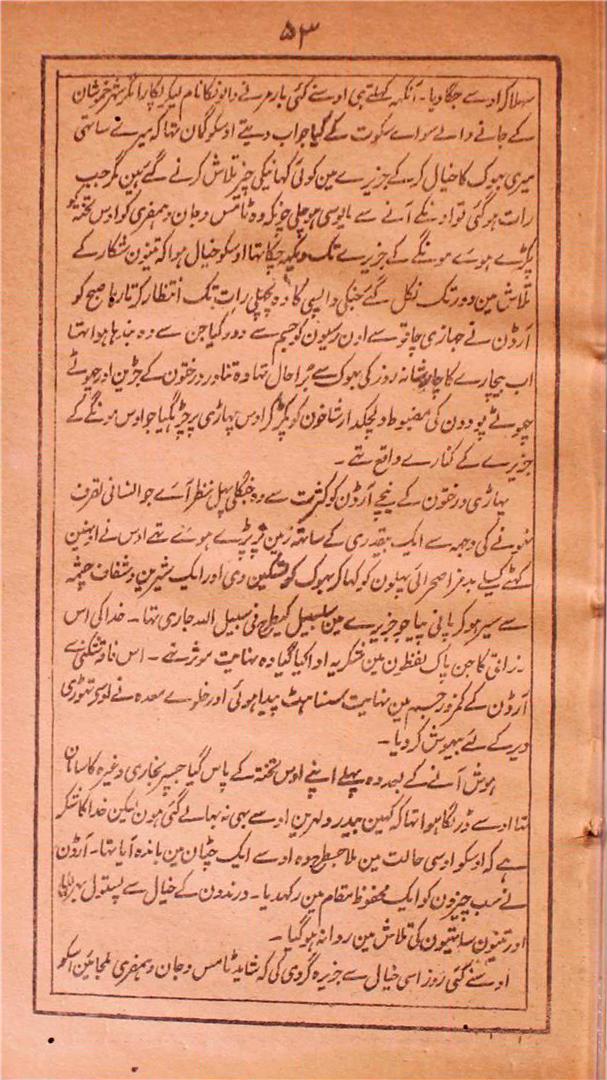 ۵۳
سہلا کر اوسے جگا دیا۔ آنکہہ کہلتے ہی اوسنے کئی بار مرنے والونکا نام لیکر پکارا مگر شہر خموشان
کے جانے والے سواے سکوت کے کیا جواب دیتے اوسکو گمان تہا کہ میرے ساتہی
میری بہوک کا خیال کرکے جزیرے مین کوئی کہانیکی چیز تلاش کرنے گئے ہین مگر جب
رات ہوگئی تو اونکے آنے سے مایوسی ہوچلی چونکہ وہ ٹامس و جان و ہمفری کو اوس تختہ کو
پکڑے ہوے مونگے کے جزیرے تک دیکہہ چکا تہا اوسکو خیال ہوا کہ تینون شکار کے
تلاش مین دور تک نکل گئے جنکی واپسی کا وہ پچہلی رات تک انتظار کرتا رہا صبح کو
آرڈن نے جہازی چاقو سے اون رسیون کو جسم سے دور کیا جن سے وہ بندہا ہوا تہا
اب بیچارے کا چار شبانہ روز کی بہوک سے بُرا حال تہا وہ تناور درختون کے جڑین اور چہوٹے
چہوٹے پودون کی مضبوط و لچکدار شاخون کو پکڑ کر اوس پہاڑی پر چڑہگیا جو اوس مونگے کے
جزیرے کے کنارے واقع تہے۔
پہاڑی درختون کے نیچے آرڈن کو کثرت سے وہ جنگلی پہل نظر آے جو انسانی تصرف
نہونے کی وجہہ سے ایک بیقدری کے ساتہہ زمین پر پڑے ہوے تہے اوس نے اونہین
کہٹے کسیلے بدمزا صحرائی پہلون کو کہا کر بہوک کو تسکین دی اور ایک شیرین و شفاف چشمہ
سے سیر ہوکر پانی پیا جو جزیرے مین سلسبیل کیطرح فی سبیل اللہ جاری تہا۔ خدا کی اس
رزاقی کا جن پاک لفظون مین شکریہ ادا کیا گیا وہ نہایت موثر تہے۔ اس فاقہ شکنی سے
آرڈن کے کمزور جسم مین نہایت سنساہٹ پیدا ہوئی اور خلوے معدہ نے اوسے تہوڑی
دیر کے لئے بیہوش کردیا۔
ہوش آنے کے بعد وہ پہلے اپنے اوس تختہ کے پاس گیا جسپر بخاری وغیرہ کا سامان
تہا اوسے ڈر لگا ہوا تہا کہ کہین بیدرد لہرین اوسے بہی نہ بہا لے گئی ہون لیکن خدا کا شکر
ہے کہ اوسکو اوسی حالت مین ملا جسطرح وہ اوسے ایک چٹان مین باندہ آیا تہا۔ آرڈن
نے سب چیزون کو ایک محفوظ مقام مین رکہدیا۔ درندون کے خیال سے پستول بہر لیا
اور تینون ساتہیون کی تلاش مین روانہ ہوگیا۔
اوسنے کئی روز اسی خیال سے جزیرہ گردی کی کہ شاید ٹامس و جان و ہمفری ملجائین اسکو